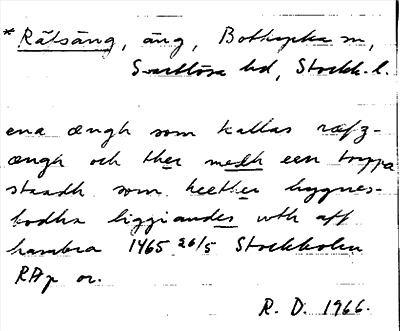 *Rälsäng, äng, Botkyrka sn,
Svartlösa hd, Stockh. l.
ena ængh som kallas ræfz-
ængh och ther medh een torppa
staadh som heether bygnes-
bodha liggiandes wth aff
hambra 1465 26/5 Stockholm
RAp or.
R. D. 1966.